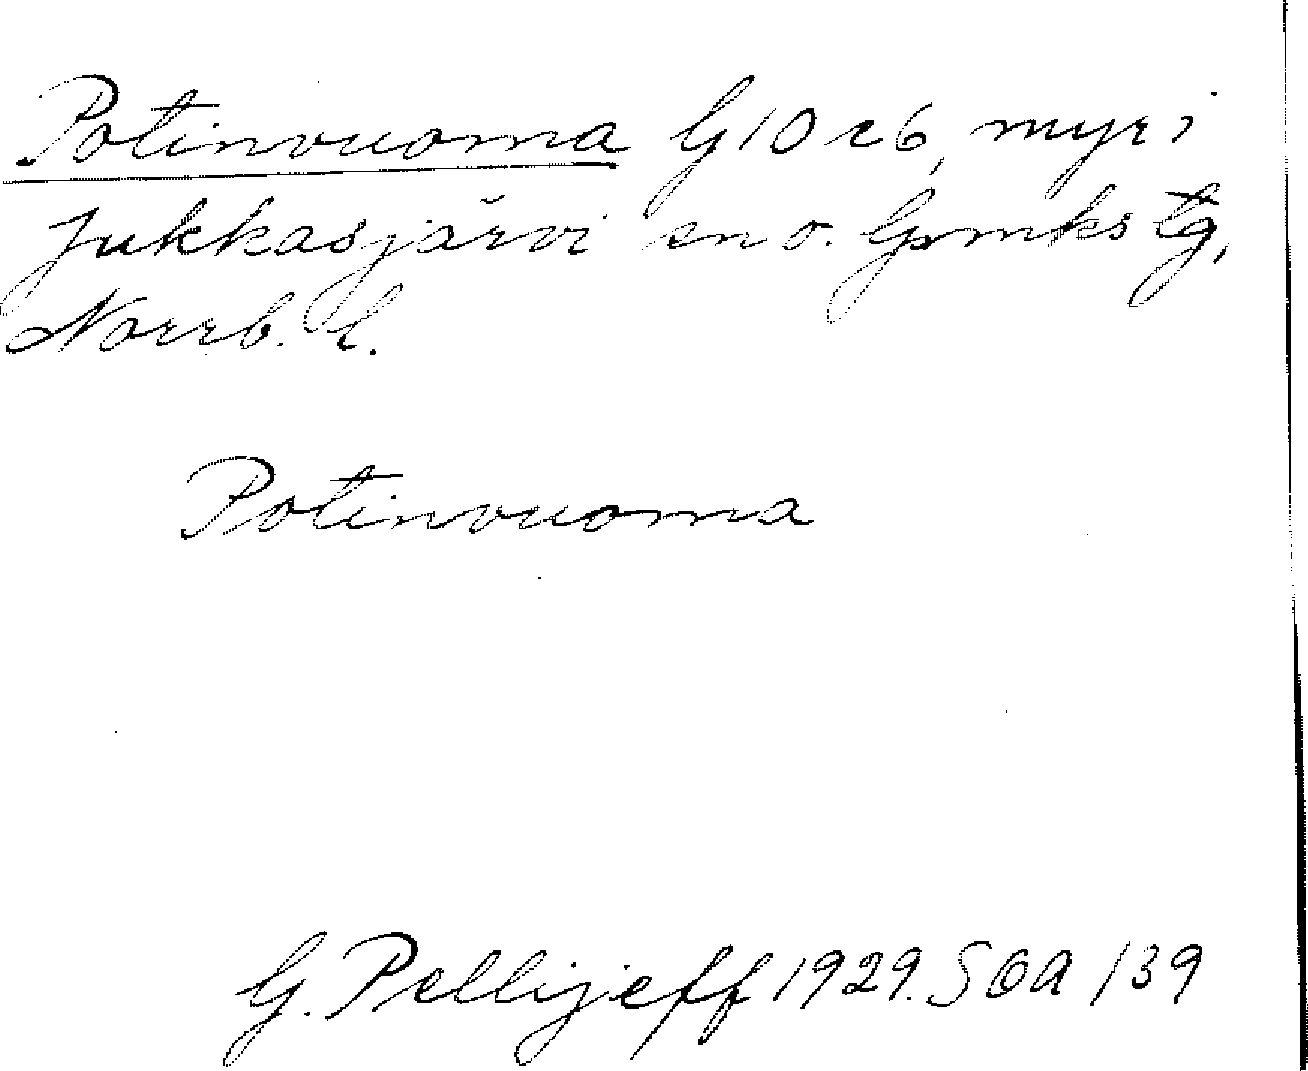 Potinvuoma G10 c6, myr i
Jukkasjärvi sn o. Gvmks tg,
Norrb. l.
Potinvuoma
G. Pellijeff 1929. SOA /39